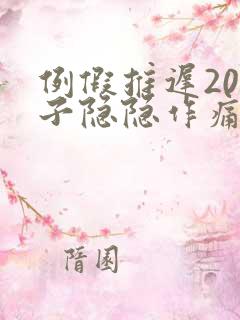 例假推迟20
子隐隐作痛
隋园